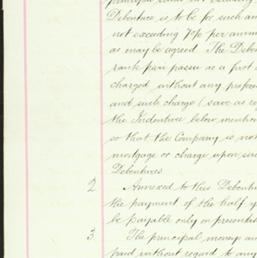 Debenture is to be for such am
not exceeding 7% per annum
as may be agreed. The Deben
rank pari passu as a first c
charged without any prefere
and such charge (save as re
the Indenture below mention
so that the Company is not
mortgage or charge upon
Debentures.
2 Annexed to this Debentu
the payment of the half y
be payable only on presentat
3 The principal moneys an
paid without regard to any